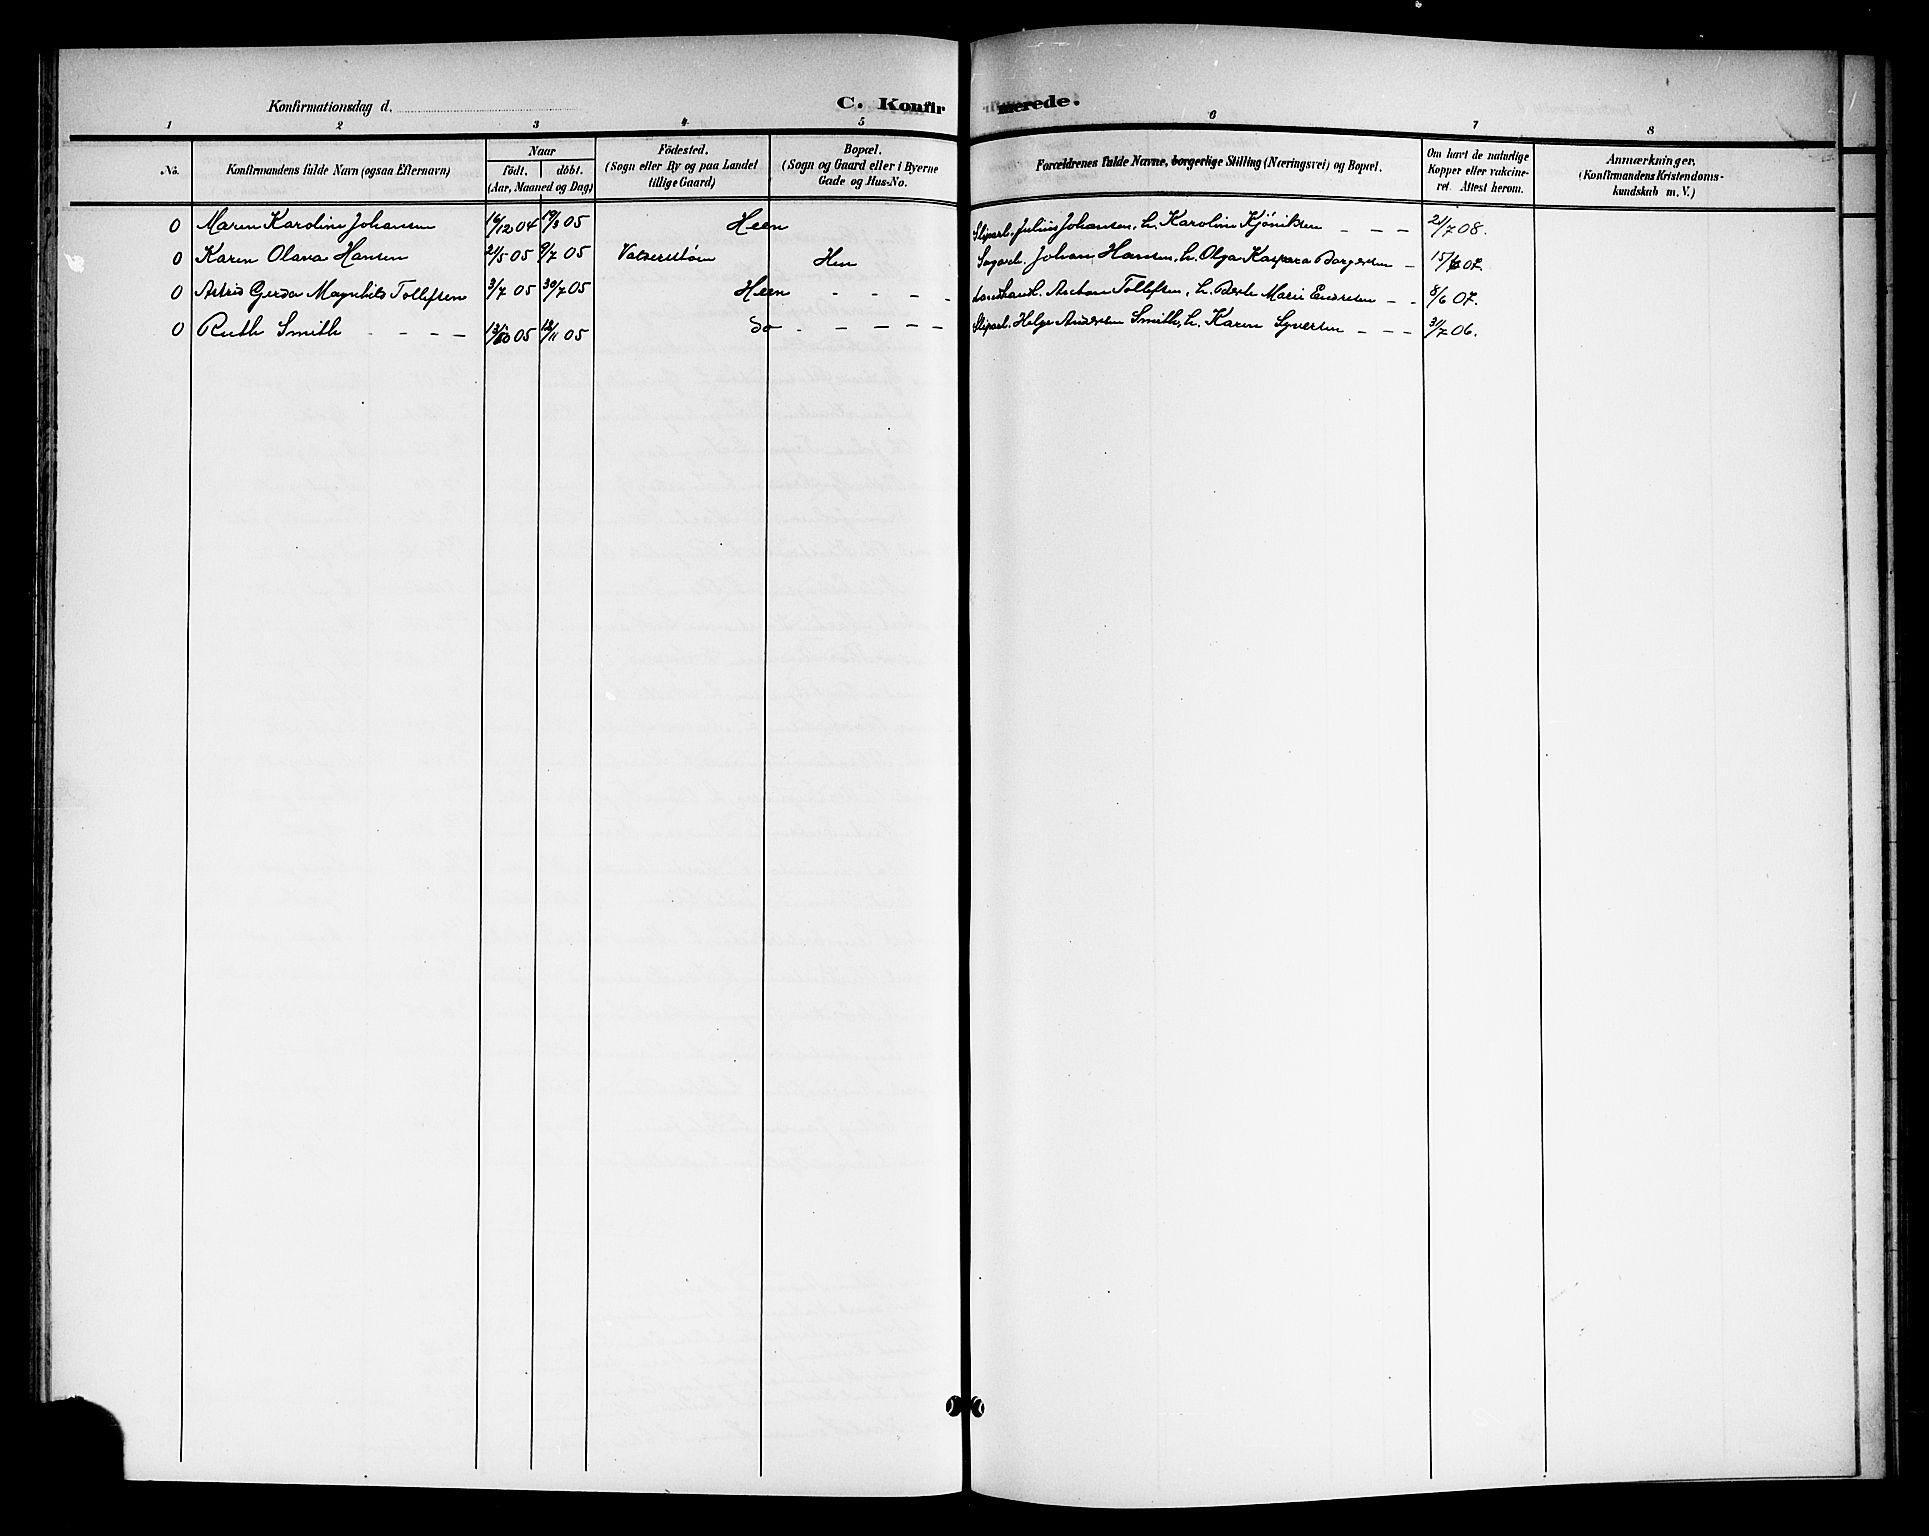 Konfirmationsdag d.
C. Konfirmerede.
1 2 3 4 5 6 7 8
No.
Konfirmandens fulde Navn (ogsaa Efternavn)
Naar
födt. döbt.
(Aar, Maaned og Dag)
Födested.
(Sogn eller By og paa Landet
tillige Gaard)
Bopæl.
(Sogn og Gaard eller i Byerne
Gade og Hus-No.
Forældrenes fulde Navne, borgerlige Stilling (Næringsvei) og Bopæl.
Om havt de naturlige
Kopper eller vakcine-
ret. Attest herom.
Anmærkninger,
(Konfirmandens Kristendoms-
kundskab m. V.)
0 Maren Karoline Johansen 16/12 04 19/3 05 Heen Sliparb. Julius Johansen, h. Karoline Kjöniksen - - - 21/7 08.
0 Karen Olava Hansen 21/5 05 9/7 05 Hen Sagarb. Johan Hansen, h. Olga Kaspara Borgersen - 15/6 07.
0 Astrid Gerda Magnhild Tollefsen 3/7 05 30/7 05 Heen - - - - Landhand. Anton Tollefsen, h. Berte Marie Endresen - - 8/6 07.
0 Ruth Smith - - - - 13/10 05 12/11 05 Do - - - - Sliparb. Helge Andersen Smith, h. Karen Syversen - - - 31/7 06.